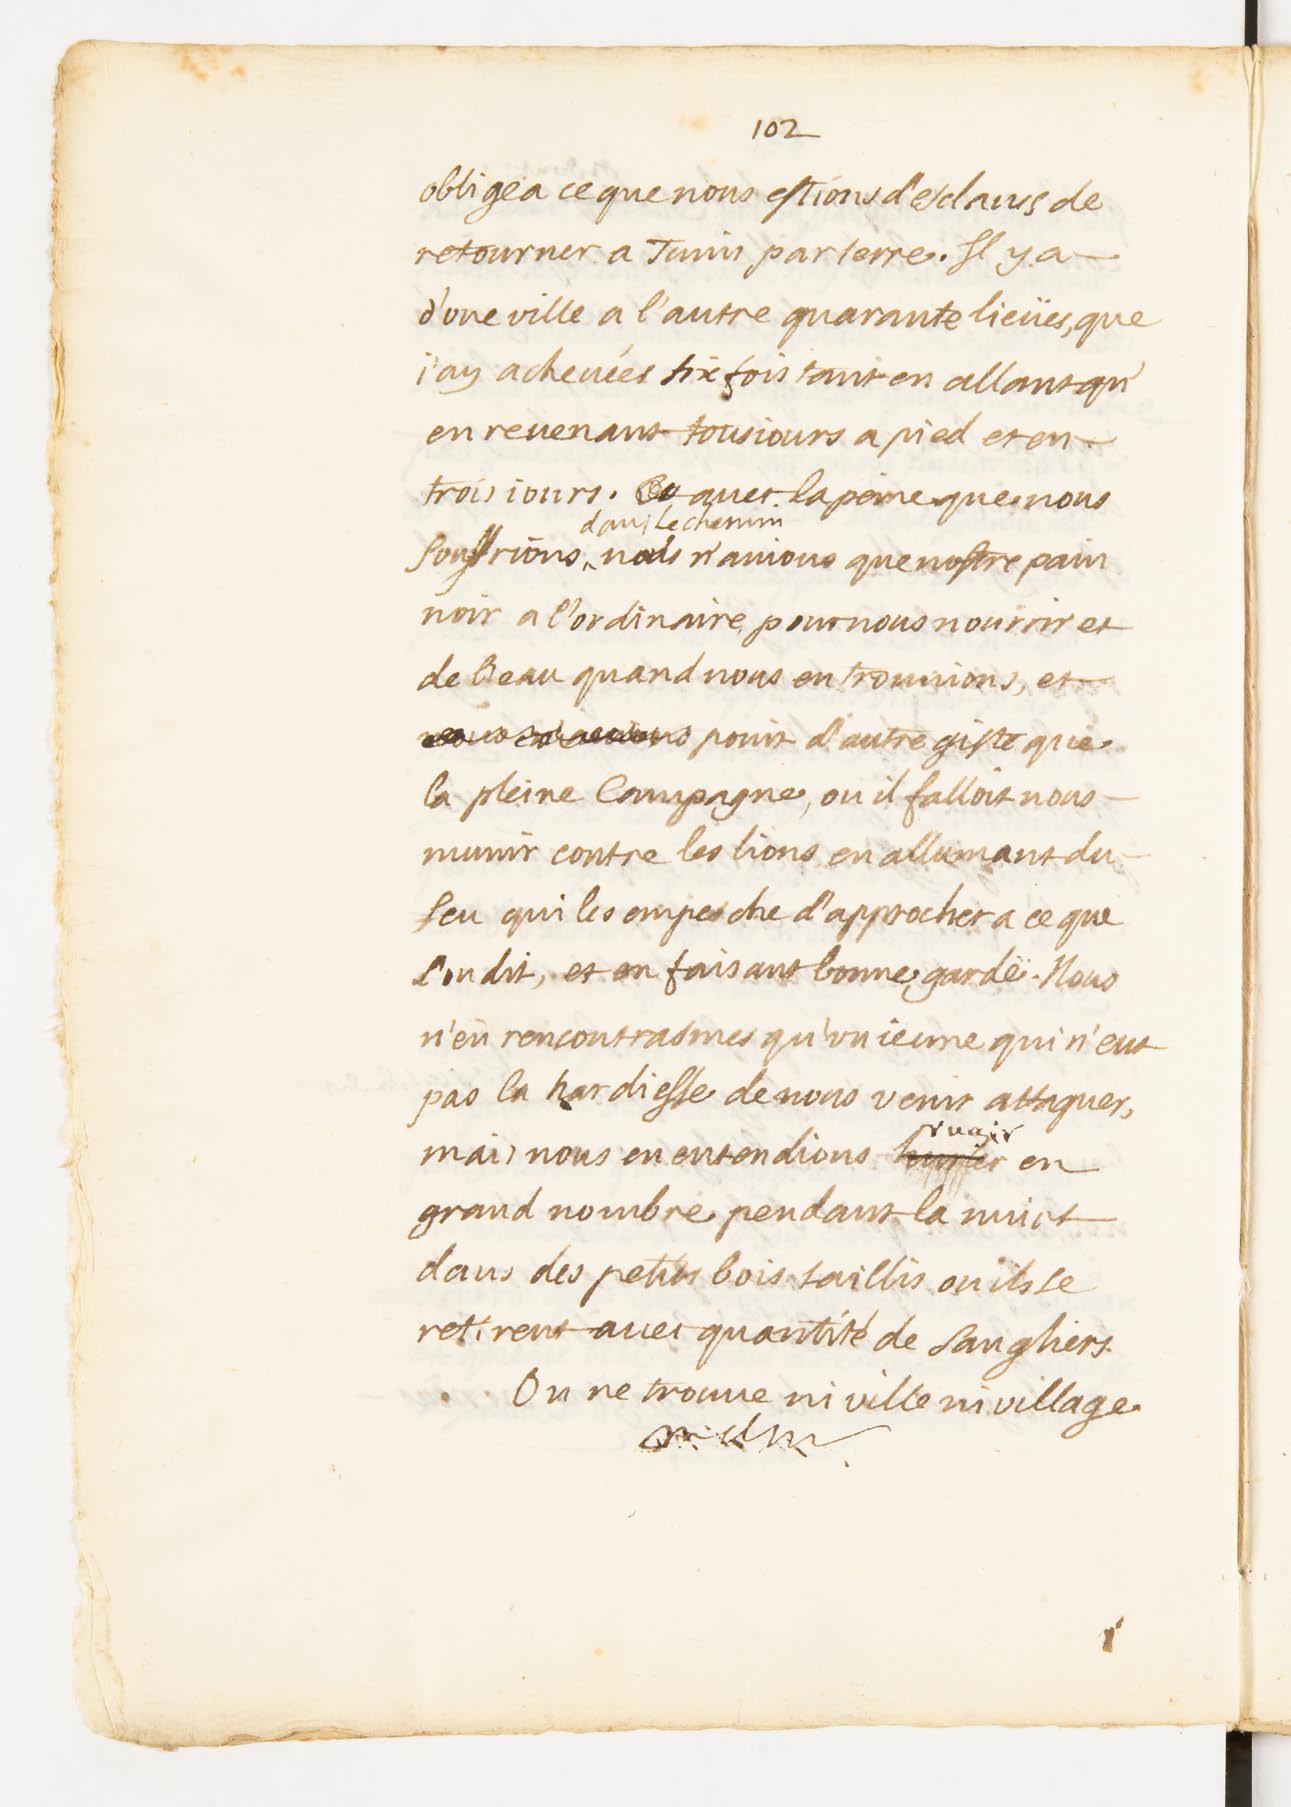 102
obligea ce que nous estions d'esclaues de
retourner a Tunis par terre. Il y a
d'vne ville a l'autre quarante lieües, que
i'ay acheuées six fois tant en allant qu'
en reuenant tousiours a pied et en
trois iours. Et auec la peine que nous
dans le chemin
souffrions, nous n'auions que nostre pain
noir a l'ordinaire pour nous nourrir et
de l'eau quand nous en trouuions, et
point d'autre giste que
la pleine Campagne, ou il falloit nous
munir contre les lions en allumant du
feu qui les empesche d'approcher a ce que
l'on dit, et en faisant bonne garde. Nous
n'en rencontrasmes qu'vn ieune qui n'eut
pas la hardiesse de nous venir attaquer,
rugir
mais nous en entendions hurler en
grand nombre pendant la nuict
dans des petits bois taillis ou ils se
retirent auec quantité de sangliers.
On ne trouue ni ville ni village